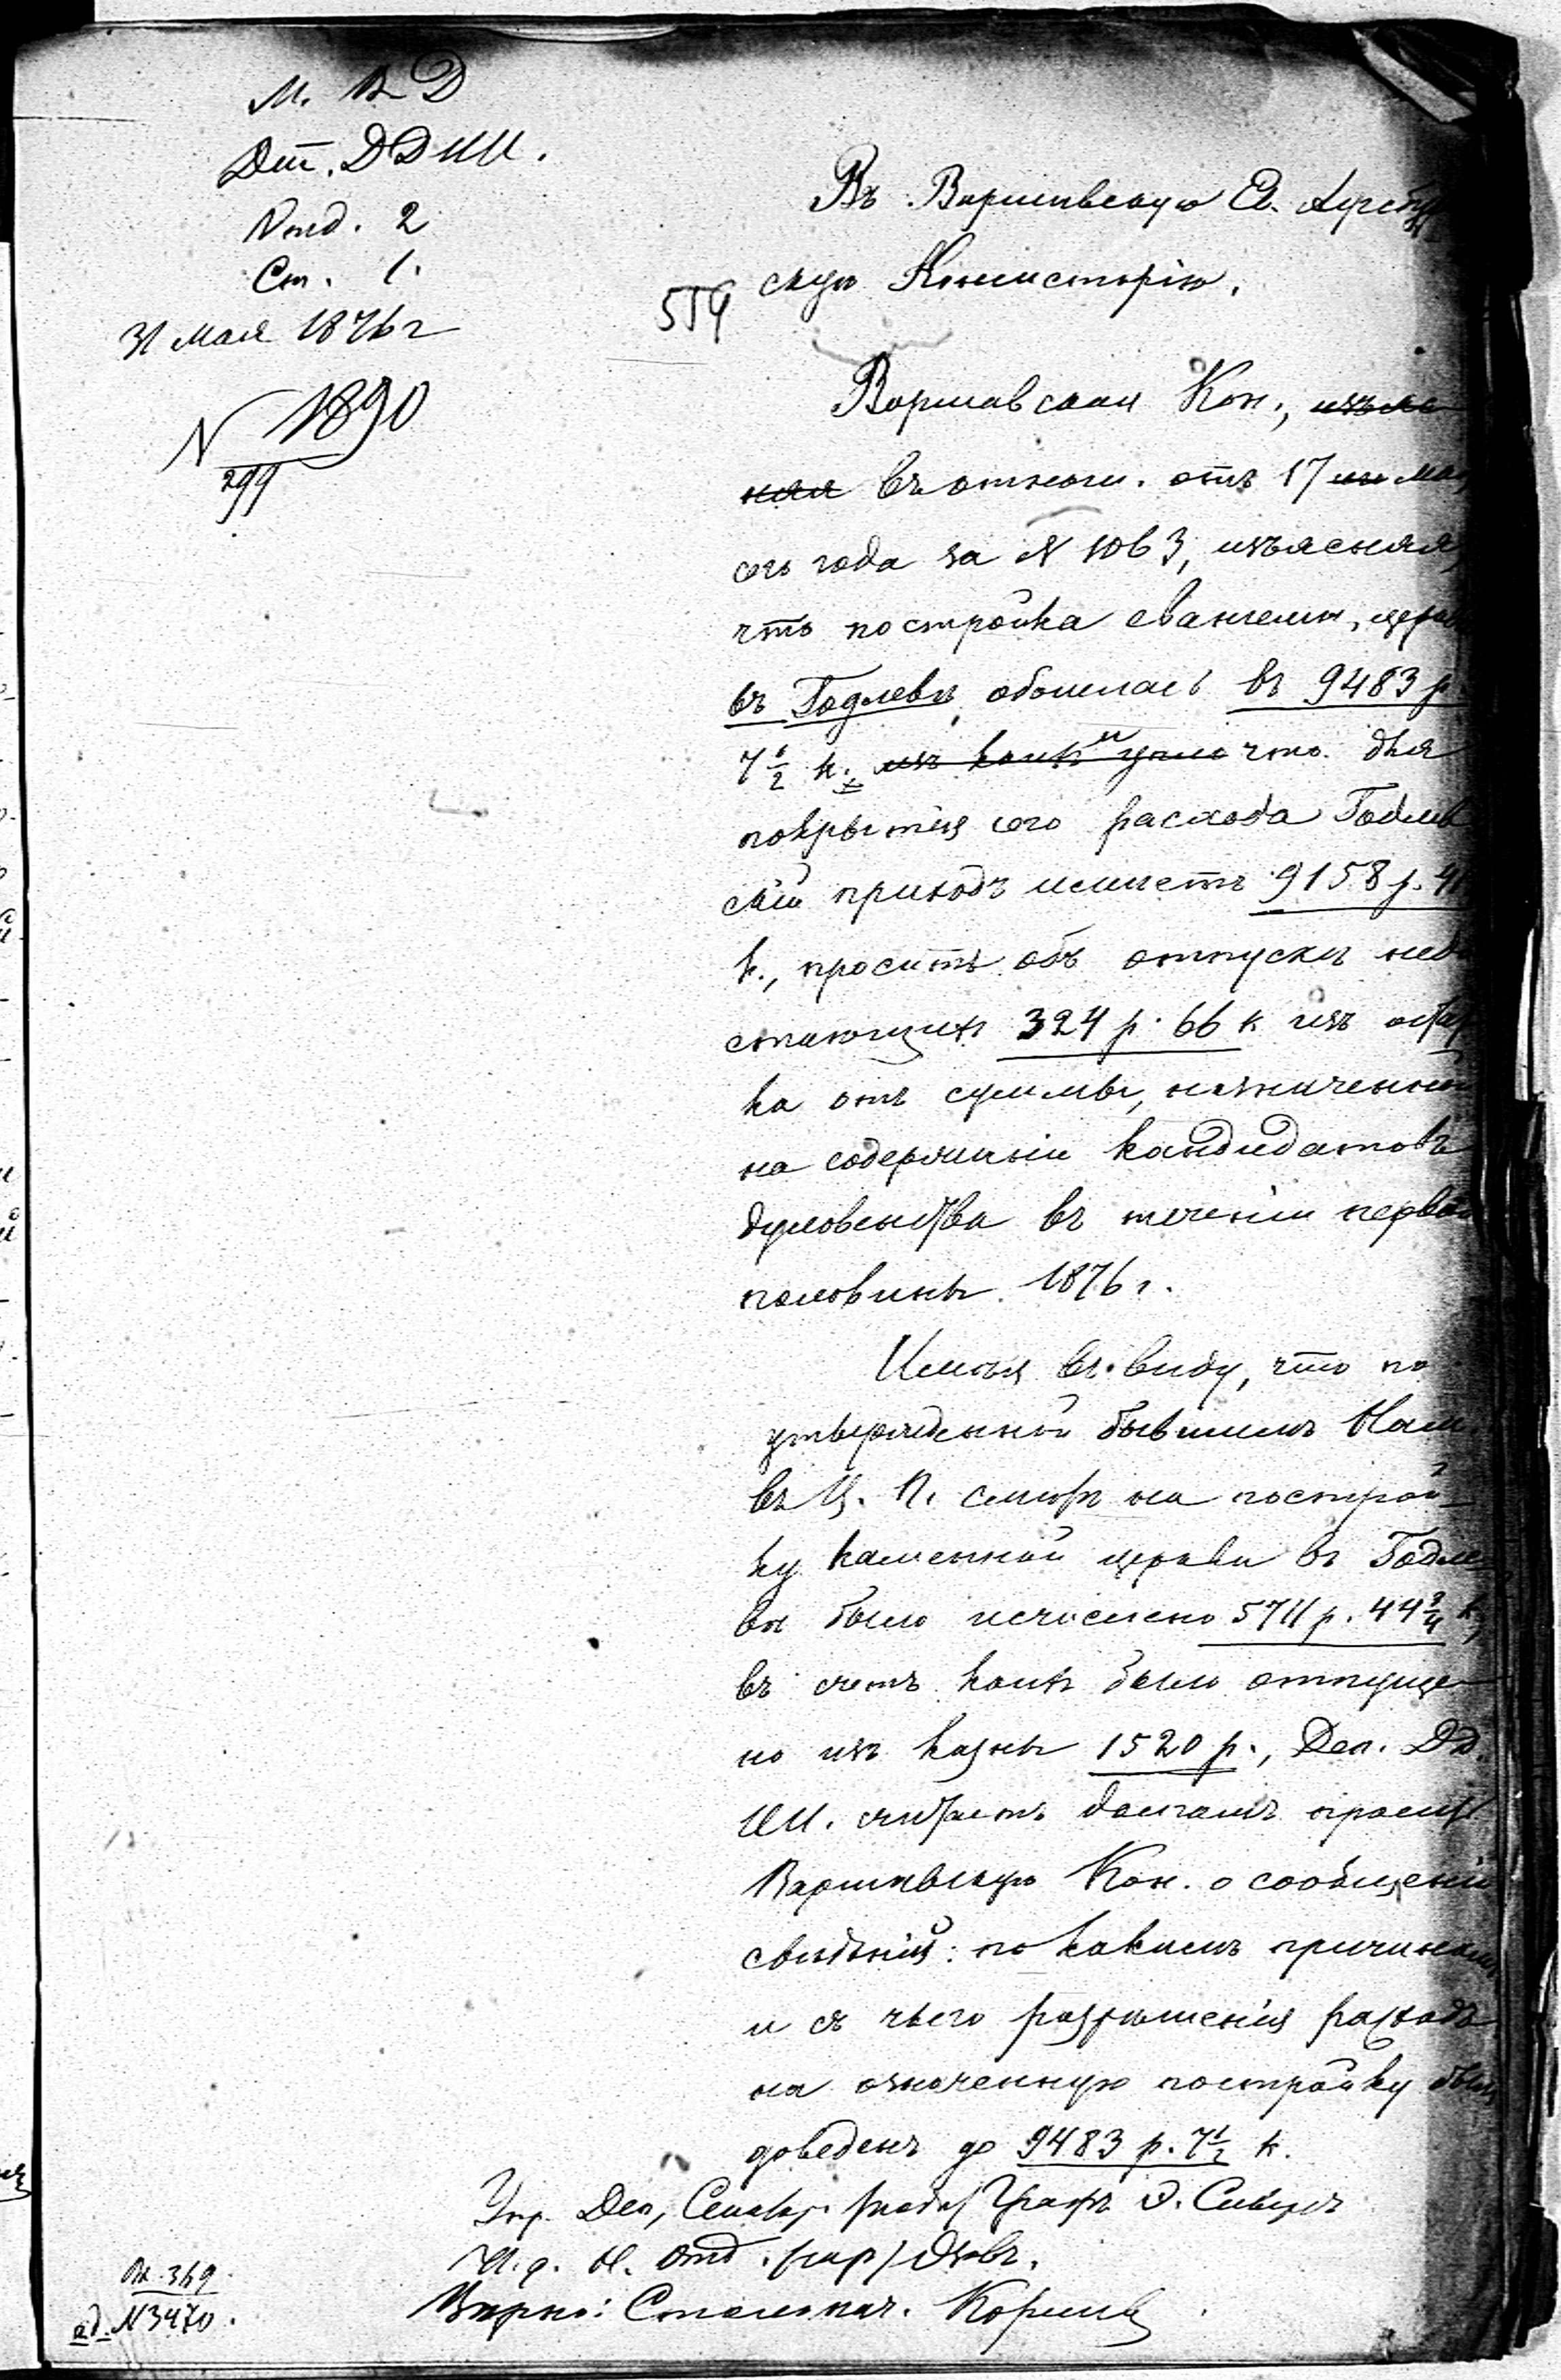 М. В Д
Дп. ДДИИ.
Отд. 2
Ст. 1.
31 мая 1876 г
N 1890
299
Въ Варшавскую Ев. Аугсбур
554
скую Консисторію.
Варшавская Кон.,
въ отнош. отъ 17 мая
сего года за N 1063, изъясняя,
что постройка евангелич. церкви
въ Годлевѣ обошлась въ 9483 р.
7 1/2 к. изъ коихъ и что для
покрытія сего расхода Годлев
скій приходъ имѣетъ 9158 р. 41
к., проситъ объ отпускѣ недо
стающихъ 324 р. 66 к изъ остат
ка отъ суммы, назначенной
на содержаніе кандидатовъ
духовенства въ теченіи первой
половины 1876 г.
Имѣя въ виду, что по
утвержденной бывшимъ Нам.
въ Ц. П. смѣтѣ на построй-
ку каменной церкви въ Годле
вѣ было исчислено 5711 р. 44 3/4 к,
въ счетъ коихъ было отпуще-
но изъ казны 1520 р., Деп. Дд.
ИИ. считаетъ долгомъ просить
Варшавскую Кон. о сообщеніи
свѣдѣній: по какимъ причинамъ
и съ чьего разрѣшенія расходъ
на означенную постройку былъ
доведенъ до 9483 р. 7 1/2 к.
Упр. Деп, Сенатор. /подп/ Графъ Э. Сиверсъ
И. д. Н. Отд. /скр/
Вѣрно: Столонач.
Вх. 369
N 3470.